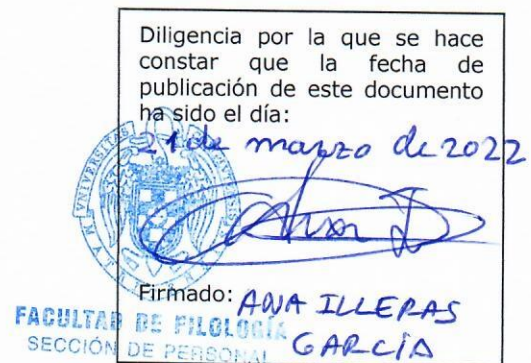 Diligencia por la que se hace
constar que la fecha de
publicación de este documento
ha sido el día:
21 de marzo de 2022
Firmado: ANA ILLERAS
GARCÍA
FACULTAD DE FILOLOGÍA
SECCIÓN DE PERSONAL